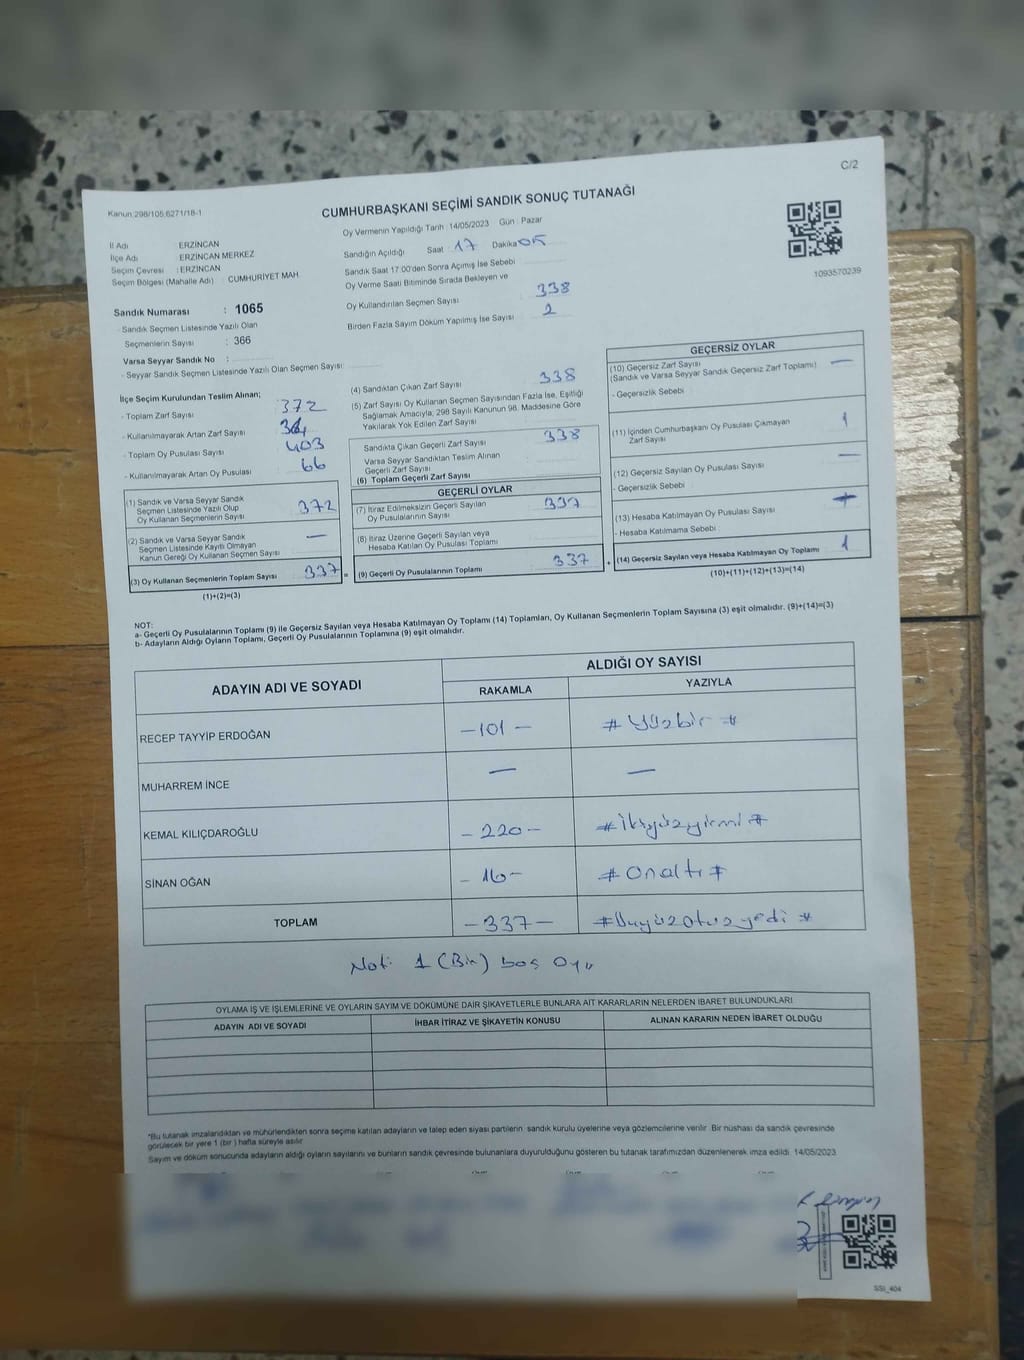 C/2
Kanun:298/105;6271/18-1
CUMHURBAŞKANI SEÇİMİ SANDIK SONUÇ TUTANAĞI
İl Adı : ERZİNCAN
İlçe Adı : ERZİNCAN MERKEZ
Seçim Çevresi : ERZİNCAN
Seçim Bölgesi (Mahalle Adı) : CUMHURİYET MAH.
Sandık Numarası : 1065
- Sandık Seçmen Listesinde Yazılı Olan
Seçmenlerin Sayısı : 366
Varsa Seyyar Sandık No :
- Seyyar Sandık Seçmen Listesinde Yazılı Olan Seçmen Sayısı:
Oy Vermenin Yapıldığı Tarih :14/05/2023 Gün : Pazar
Sandığın Açıldığı Saat : 17 Dakika 05
Sandık Saat 17:00'den Sonra Açımış İse Sebebi
Oy Verme Saati Bitiminde Sırada Bekleyen ve
Oy Kullandırılan Seçmen Sayısı : 338
Birden Fazla Sayım Döküm Yapılmış İse Sayısı : 2
1093570239
İlçe Seçim Kurulundan Teslim Alınan;
- Toplam Zarf Sayısı : 372
- Kullanılmayarak Artan Zarf Sayısı
- Toplam Oy Pusulası Sayısı : 403
- Kullanılmayarak Artan Oy Pusulası : 66
(1) Sandık ve Varsa Seyyar Sandık
Seçmen Listesinde Yazılı Olup
Oy Kullanan Seçmenlerin Sayısı : 372
(2) Sandık ve Varsa Seyyar Sandık
Seçmen Listesinde Kayıtlı Olmayan
Kanun Gereği Oy Kullanan Seçmen Sayısı : —
(3) Oy Kullanan Seçmenlerin Toplam Sayısı : 337 =
(1)+(2)=(3)
(4) Sandıktan Çıkan Zarf Sayısı : 338
(5) Zarf Sayısı Oy Kullanan Seçmen Sayısından Fazla İse, Eşitliği
Sağlamak Amacıyla; 298 Sayılı Kanunun 98. Maddesine Göre
Yakılarak Yok Edilen Zarf Sayısı
Sandıkta Çıkan Geçerli Zarf Sayısı : 338
Varsa Seyyar Sandıktan Teslim Alınan
Geçerli Zarf Sayısı
(6) Toplam Geçerli Zarf Sayısı
GEÇERLİ OYLAR
(7) İtiraz Edilmeksizin Geçerli Sayılan
Oy Pusulalarının Sayısı : 337
(8) İtiraz Üzerine Geçerli Sayılan veya
Hesaba Katılan Oy Pusulası Toplamı
(9) Geçerli Oy Pusulalarının Toplamı : 337 +
GEÇERSİZ OYLAR
(10) Geçersiz Zarf Sayısı —
(Sandık ve Varsa Seyyar Sandık Geçersiz Zarf Toplamı)
- Geçersizlik Sebebi :
(11) İçinden Cumhurbaşkanı Oy Pusulası Çıkmayan
Zarf Sayısı : 1
(12) Geçersiz Sayılan Oy Pusulası Sayısı : —
- Geçersizlik Sebebi :
(13) Hesaba Katılmayan Oy Pusulası Sayısı :
- Hesaba Katılmama Sebebi :
(14) Geçersiz Sayılan veya Hesaba Katılmayan Oy Toplamı : 1
(10)+(11)+(12)+(13)=(14)
NOT:
a- Geçerli Oy Pusulalarının Toplamı (9) ile Geçersiz Sayılan veya Hesaba Katılmayan Oy Toplamı (14) Toplamları, Oy Kullanan Seçmenlerin Toplam Sayısına (3) eşit olmalıdır. (9)+(14)=(3)
b- Adayların Aldığı Oyların Toplamı, Geçerli Oy Pusulalarının Toplamına (9) eşit olmalıdır.
ADAYIN ADI VE SOYADI ALDIĞI OY SAYISI
RAKAMLA YAZIYLA
RECEP TAYYİP ERDOĞAN -101- # Yüzbir #
MUHARREM İNCE — —
KEMAL KILIÇDAROĞLU -220- # İkiyüzyirmi #
SİNAN OĞAN -16- # Onaltı #
TOPLAM -337- # Üçyüzotuzyedi #
Not: 1 (Bir) boş Oy
OYLAMA İŞ VE İŞLEMLERİNE VE OYLARIN SAYIM VE DÖKÜMÜNE DAİR ŞİKAYETLERLE BUNLARA AİT KARARLARIN NELERDEN İBARET BULUNDUKLARI
ADAYIN ADI VE SOYADI İHBAR İTİRAZ VE ŞİKAYETİN KONUSU ALINAN KARARIN NEDEN İBARET OLDUĞU
*Bu tutanak imzalandıktan ve mühürlendikten sonra seçime katılan adayların ve talep eden siyasi partilerin sandık kurulu üyelerine veya gözlemcilerine verilir. Bir nüshası da sandık çevresinde
görülecek bir yere 1 (bir ) hafta süreyle asılır.
Sayım ve döküm sonucunda adayların aldığı oyların sayılarını ve bunların sandık çevresinde bulunanlara duyurulduğunu gösteren bu tutanak tarafımızdan düzenlenerek imza edildi. 14/05/2023
SSI_404